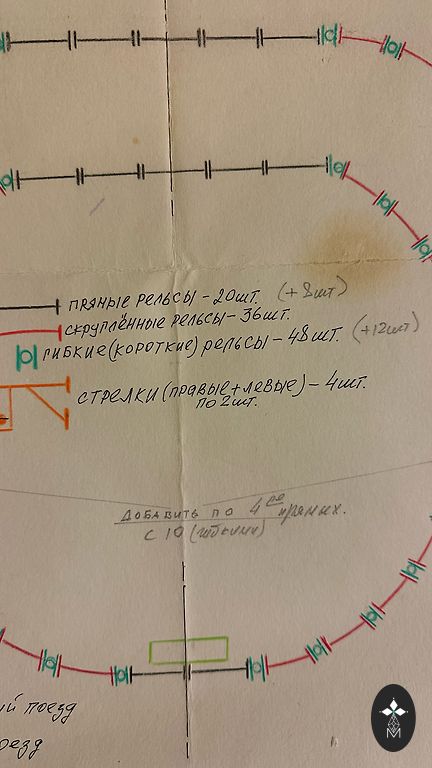 прямые рельсы - 20шт. (+8шт)
скруглённые рельсы - 36шт.
гибкие (короткие) рельсы - 48шт. (+12шт)
стрелки (правые + левые) - 4шт.
по 2шт.
добавить по 4 ре прямых.
с 10 (гибкими)
ий поезд
оезд
М